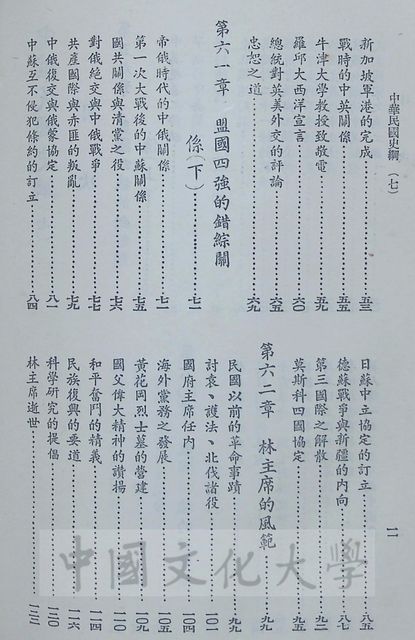 中華民國史綱（七）
新加坡軍港的完成……五三
戰時的中英關係……五五
牛津大學教授致敬電……五九
羅邱大西洋宣言……六〇
總統對英美外交的評論……六五
忠恕之道……六九
第六一章　盟國四強的錯綜關
係（下）……七一
帝俄時代的中俄關係……七一
第一次大戰後的中蘇關係……七五
國共關係與清黨之役……七六
對俄絕交與中俄戰爭……七七
共產國際與赤匪的叛亂……七九
中俄復交與俄蒙協定……八一
中蘇互不侵犯條約的訂立……八四
二
日蘇中立協定的訂立……八五
德蘇戰爭與新疆的內向……八七
第三國際之解散……九二
莫斯科四國協定……九五
第六二章　林主席的風範……九九
民國以前的革命事蹟……九九
討袁、護法、北伐諸役……一〇一
國府主席任內……一〇四
海外黨務之發展……一〇五
黃花岡烈士墓的營建……一〇九
國父偉大精神的讚揚……一一〇
和平奮鬥的精義……一一四
民族復興的要道……一一六
科學研究的提倡……一二〇
林主席逝世……一二三
中國文化大學